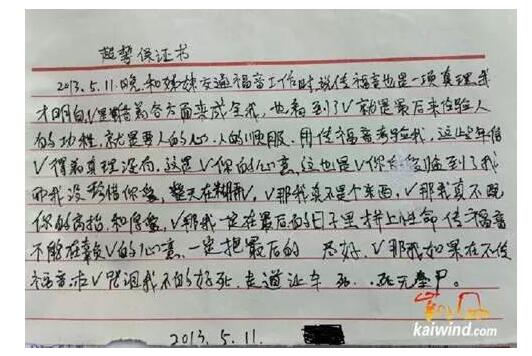 起誓保证书
2013.5.11.晚,和姊妹交通福音工作时,说传福音也是一项真理,我
才明白,V是借着各方面来成全我,也看到了V就是最后来检验人
的功程,就是要人的心,人的顺服。用传福音考验我,这些年信
V得着真理没有,这是V你的心意,这也是V你 临到了我
而我没珍惜你 ,整天在糊弄V,V那我真不是个东西,V那我真不配
你的高抬,和 ,V那我一定在最后的日子里拼上性命传福音
不能在辜负V的心意,一定把最后的 尽好,V那我如果在不传
福音求V咒诅我不的好死,走道让车 死..死无 尸。
2013.5.11.
kaiwind.com